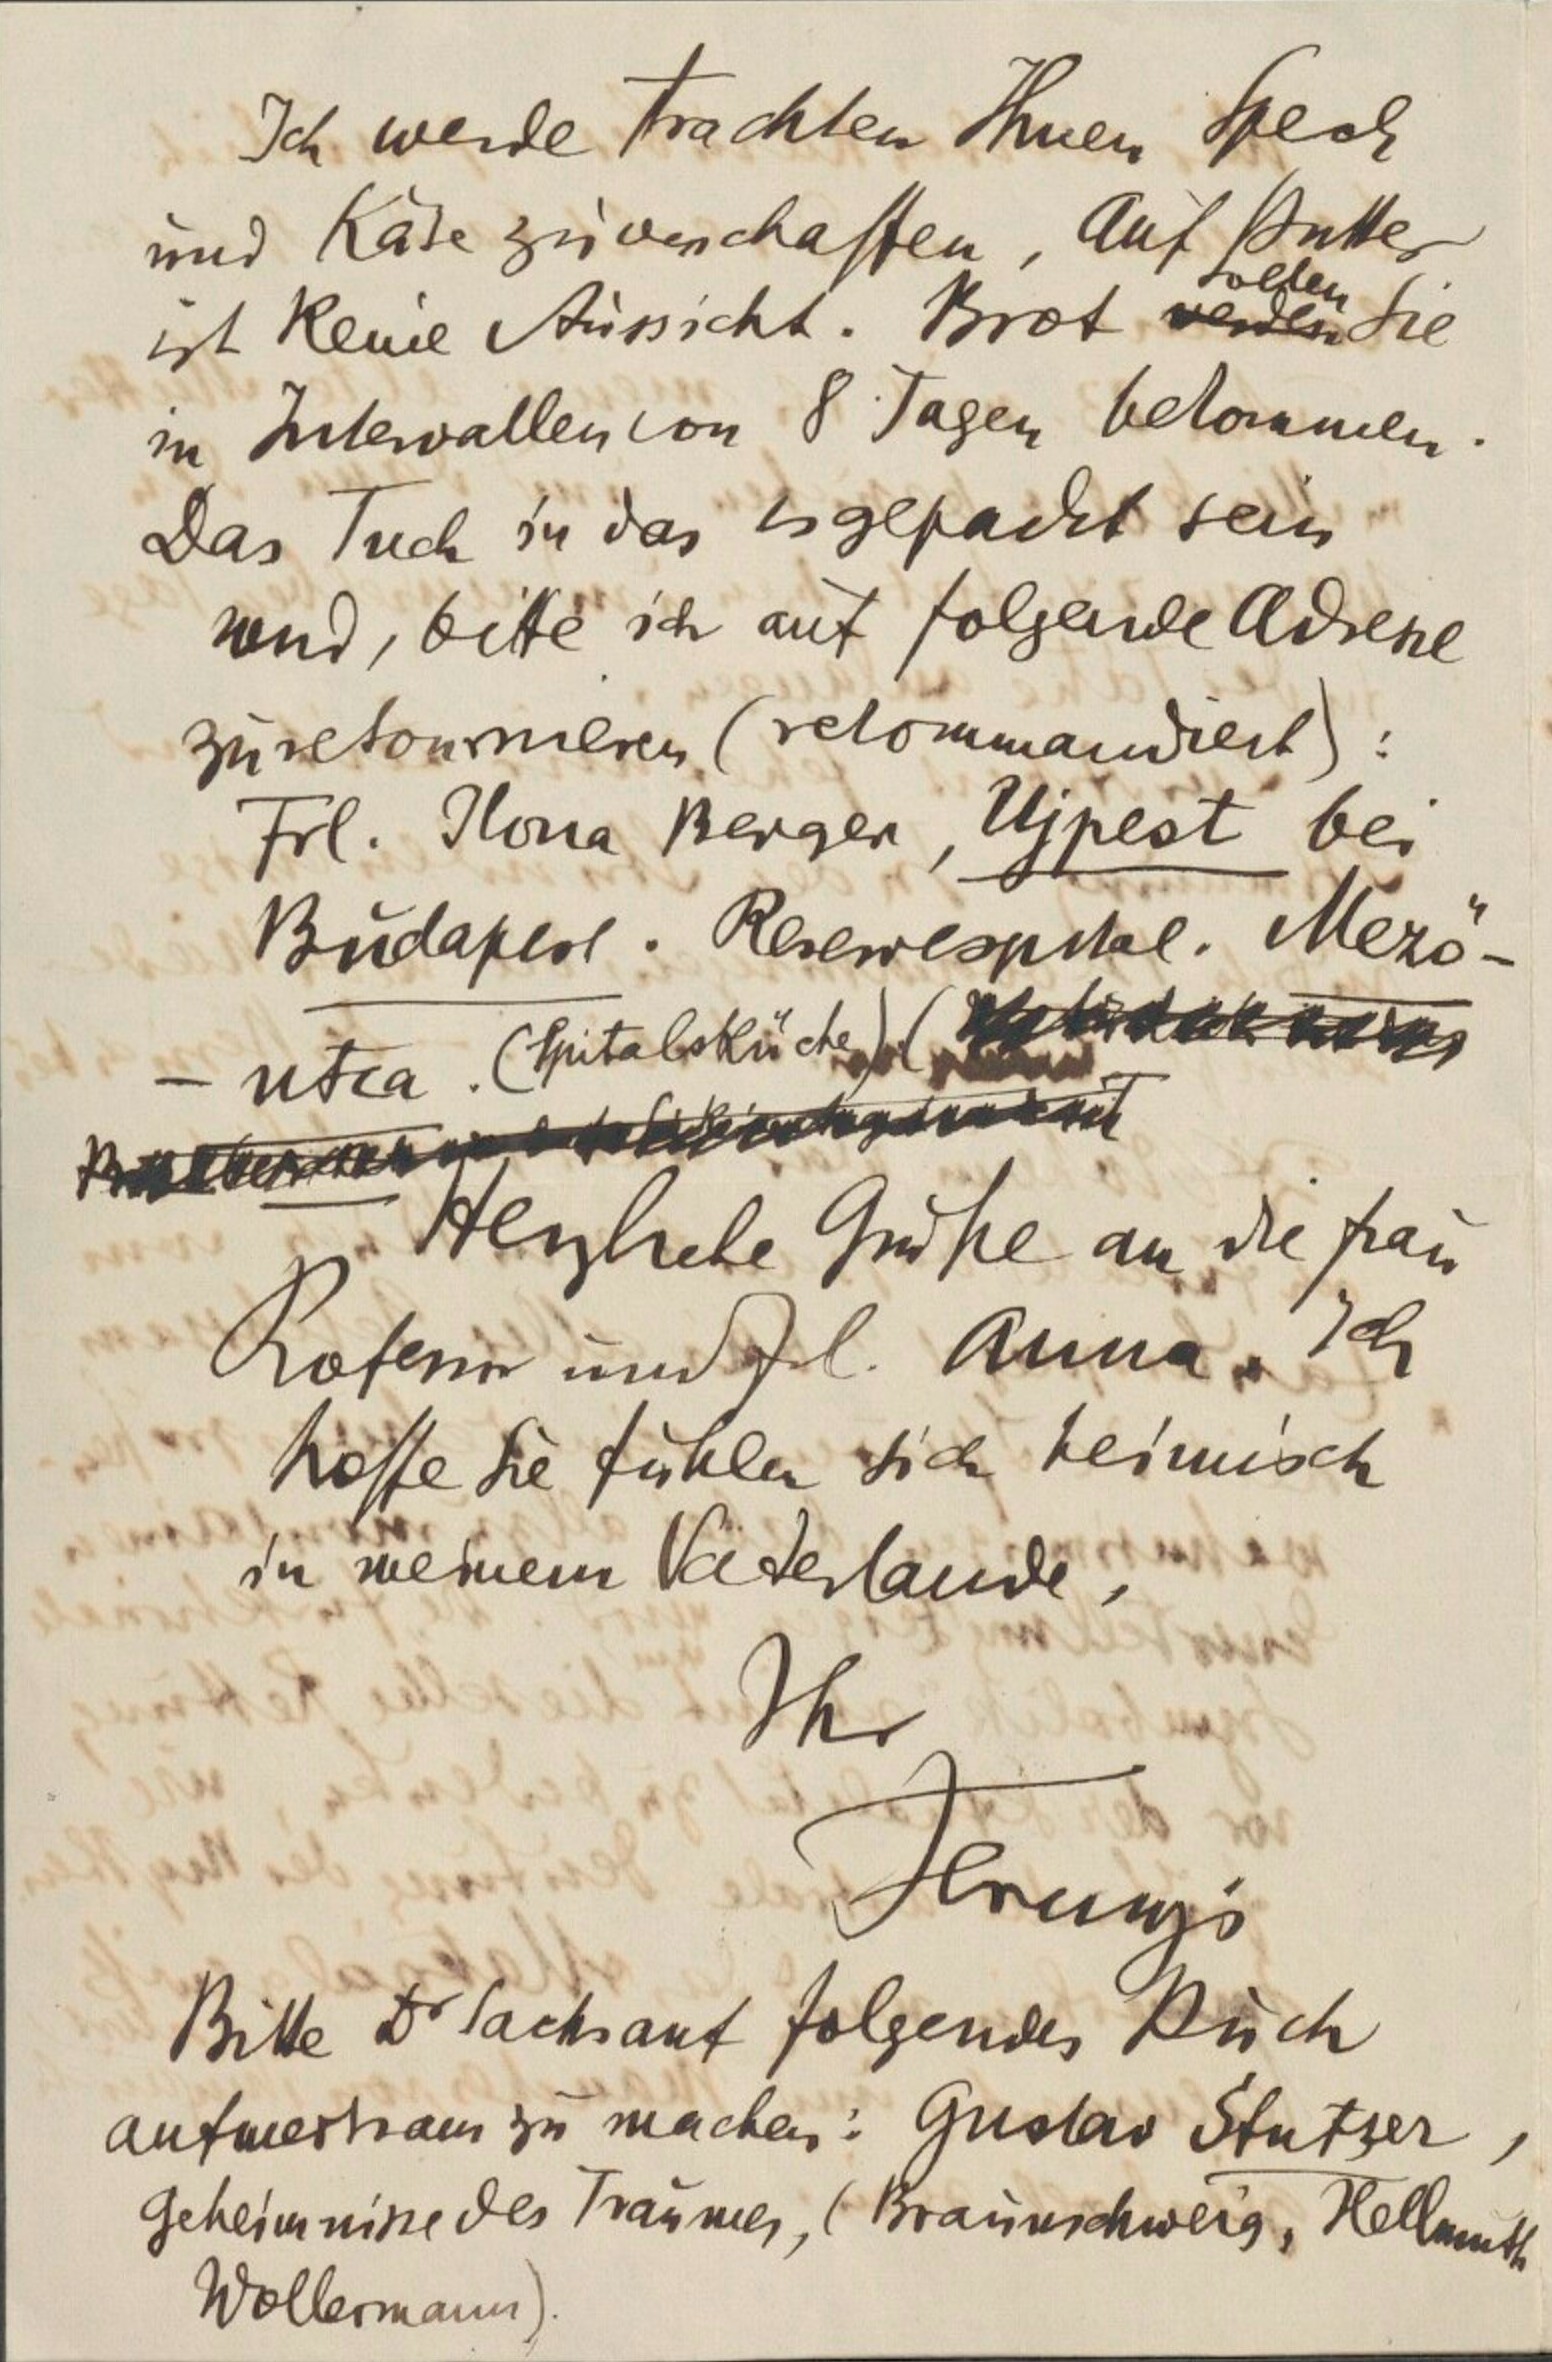 Ich werde trachten Ihnen Speck
und Käse zu verschaffen, Auf Butter
ist keine Aussicht. Brot werden sollen Sie
in Intervallen von 8 Tagen bekommen.
Das Tuch in das es gepackt sein
wird, bitte ich auf folgende Adresse
zu retournieren (rekommandiert):
Frl. Ilona Berger, Ujpest bei
Budapest. Reservespital. Mező-
- utca. (Spitalsküche) (
Herzliche Grüße an die Frau
und Frl. Anna. Ich
hoffe Sie fühlen sich heimisch
in meinem Vaterlande,
Ihr
Ferenczi
Bitte Dr Sachs auf folgendes Buch
aufmerksam zu machen: Gustav Stutzer,
Geheimnisse des Traumes, (Braunschweig, Hellmuth
Wollermann).